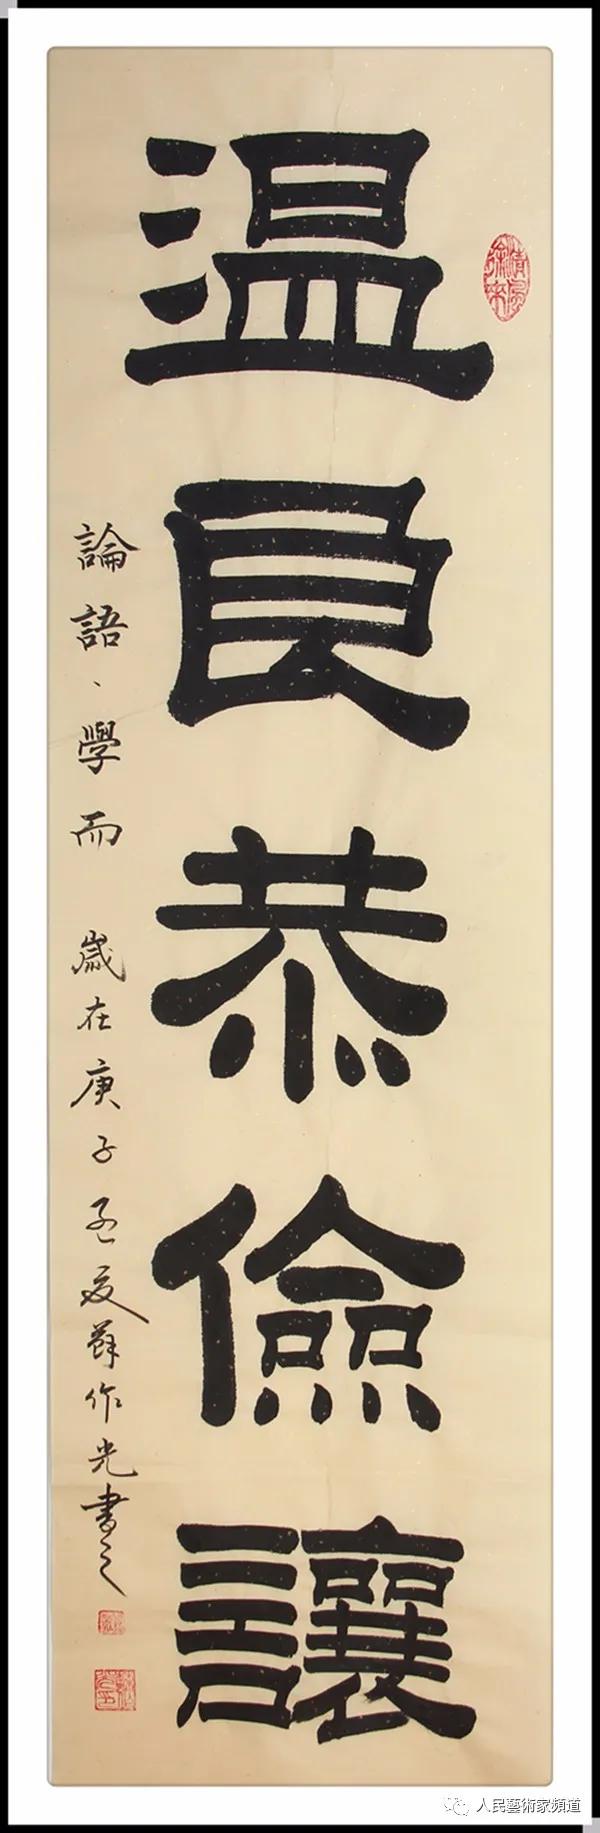 温良恭儉讓
論語、學而 歲在庚子孟夏蘇作光書之
清風徐來
人民藝術家頻道